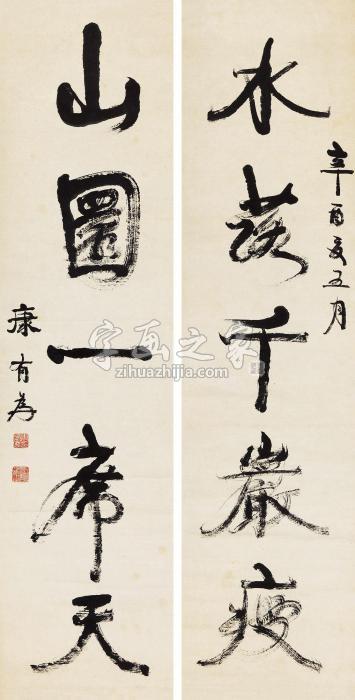 辛酉夏五月
水落千巖瘦
山圜一席天
康有為
字画之家
zihuazhijia.com